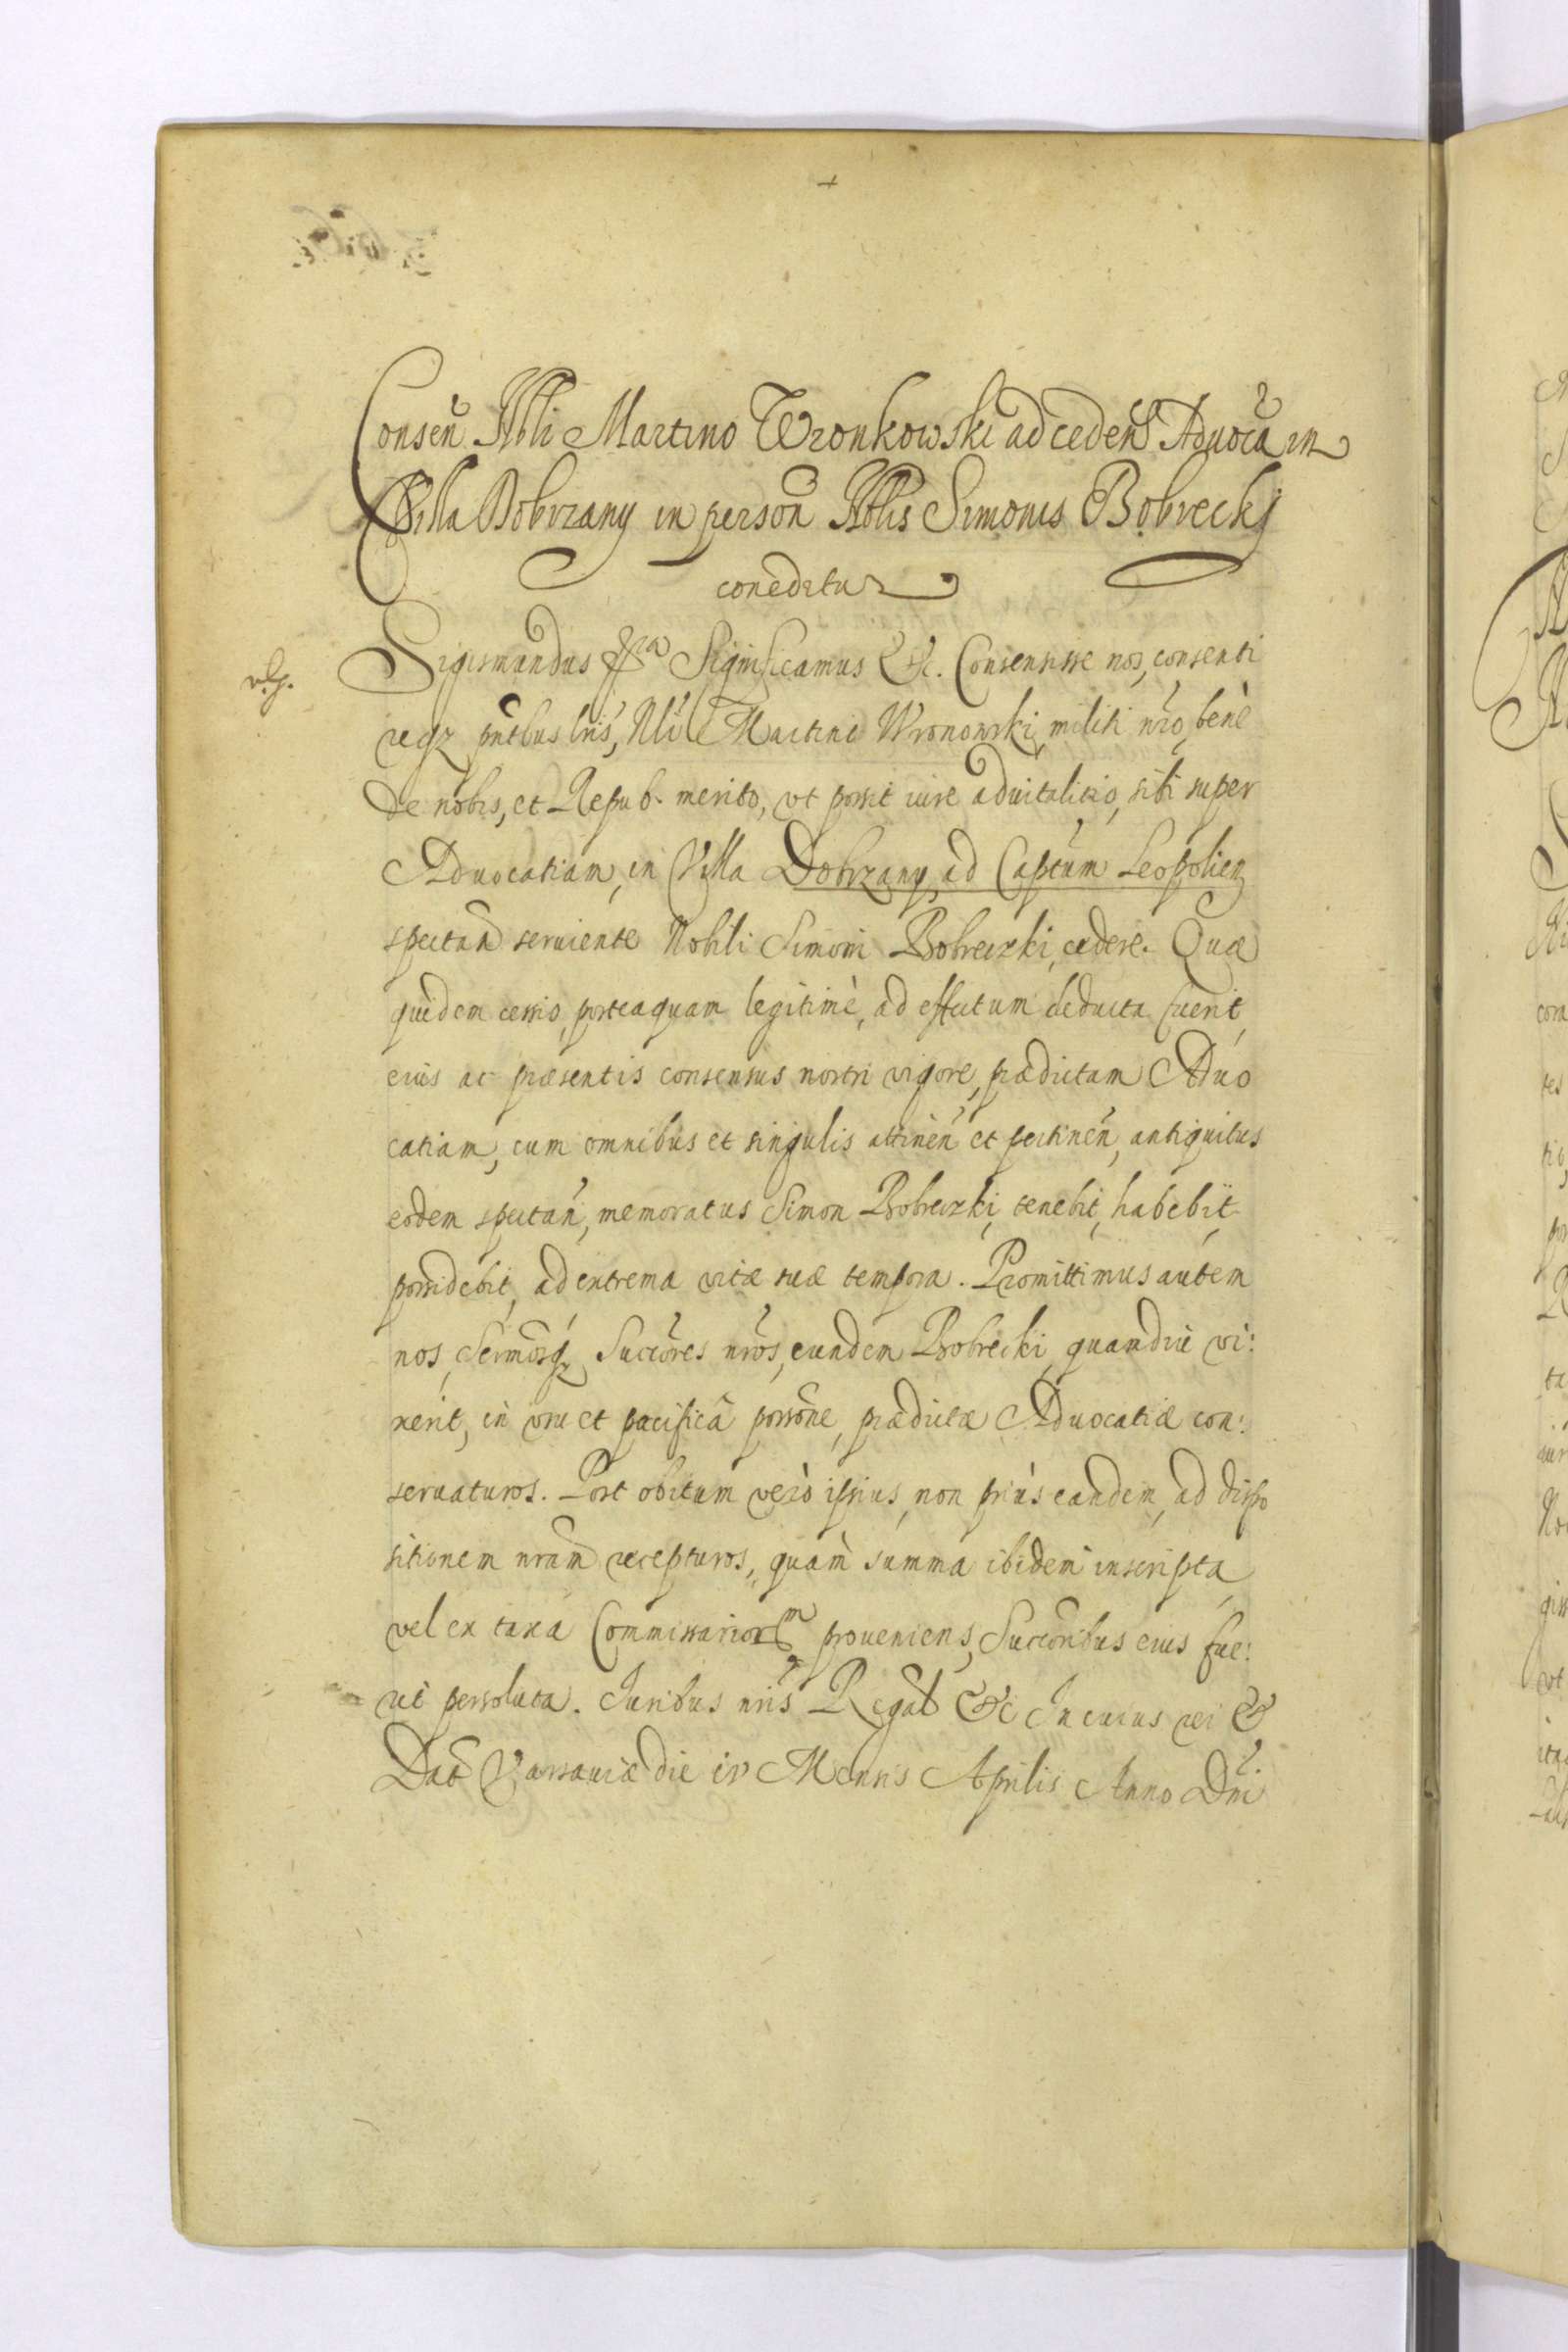 Consen̄ Nbli Martino Wronkowski ad ceden̄d Aduocā in
Villa Dobrzany in person̄ Nblis Simonis Bobrecki
conceditur
Sigismundus &ra Significamus &c. Consensisse nos, consenti
reqz pn̄tbus lris, Nli Martino Wronowski militi nr̄o, benè
de nobis, et Repub. merito, vt possit iure aduitalitio, sibi super
Aduocatiam, in Villa Dobrzany, ad Captūm Leopolien
spectan̄ seruiente Nobili Simoni Bobreczki, cedere. Quæ
quidem cessio, posteaquam legitimè, ad effectum deducta fuerit,
eius ac præsentis consensus nostri vigore, prædictam Aduo
catiam, cum omnibus et singulis attinen̄ et pertinen̄, antiquitus
eodem spectan̄, memoratus Simon Bobreczki, tenebit, habebit
possidebit, ad extrema vitæ suæ tempora. Promittimus autem
nos, Sermōsqz Succōres nr̄os, eundem Bobrecki, quamdiu vi:
xerit, in vsu et pacificâ possōne, prædictæ Aduocatiæ con:
seruaturos. Post obitum verò ipsius, non priùs eandem, ad dispo
sitionem nram recepturos, quàm summa ibidem inscripta
vel ex taxa Commissariorum proueniens, Succōribus eius fue:
rit persoluta. Iuribus nris Regal &c In cuius rei &
Dat̄ Varsauiæ die iv Mensis Aprilis Anno Dni